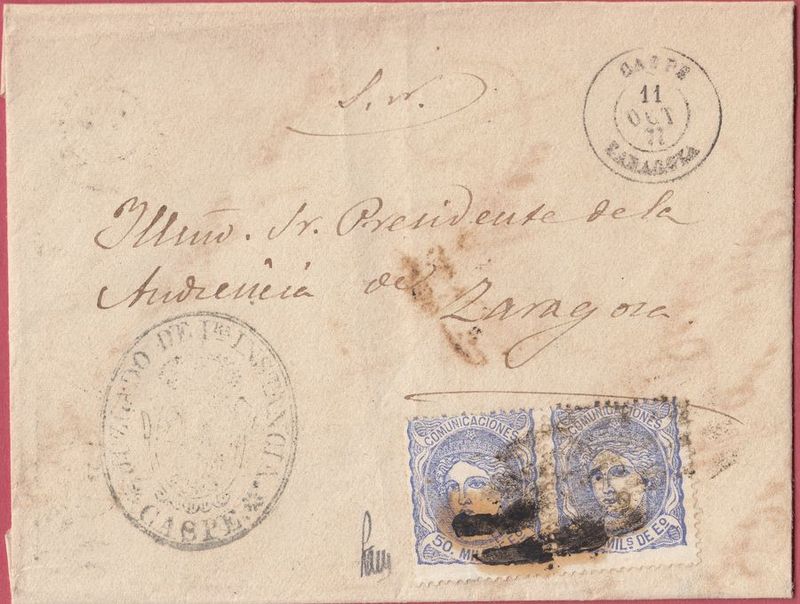 S. N.
CASPE
11
OCT
71
ZARAGOZA
Illmo. Sr. Presidente de la
Audiencia de Zaragoza.
JUZGADO DE 1ra INSTANCIA
CASPE
COMUNICACIONES
50. MILs DE Eo
COMUNICACIONES
MILs DE Eo